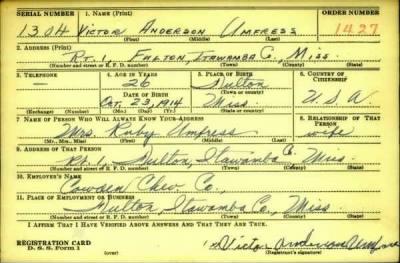 SERIAL NUMBER 1. NAME (Print) ORDER NUMBER
1304 VICTOR ANDERSON UMFRESS 1427
(First) (Middle) (Last)
2. ADDRESS (Print)
Rt. 1, FULTON, ITAWAMBA Co. Miss.
(Number and street or R. F. D. number) (Town) (County) (State)
3. TELEPHONE 4. AGE IN YEARS 5. PLACE OF BIRTH 6. COUNTRY OF CITIZENSHIP
— 26 Fulton
DATE OF BIRTH (Town or county)
Oct. 23, 1914 Miss. U.S.A.
(Exchange) (Number) (Mo.) (Day) (Yr.) (State or country)
7. NAME OF PERSON WHO WILL ALWAYS KNOW YOUR ADDRESS 8. RELATIONSHIP OF THAT PERSON
Mrs. Ruby Umfress wife
(Mr., Mrs., Miss) (First) (Middle) (Last)
9. ADDRESS OF THAT PERSON
Rt. 1, Fulton, Itawamba Co. Miss.
(Number and street or R. F. D. number) (Town) (County) (State)
10. EMPLOYER'S NAME
Cowden Chev. Co.,
11. PLACE OF EMPLOYMENT OR BUSINESS
Fulton, Itawamba Co., Miss.
(Number and street or R. F. D. number) (Town) (County) (State)
I AFFIRM THAT I HAVE VERIFIED ABOVE ANSWERS AND THAT THEY ARE TRUE.
REGISTRATION CARD Victor Anderson Umfress
D. S. S. Form 1 (over) (Registrant's signature)